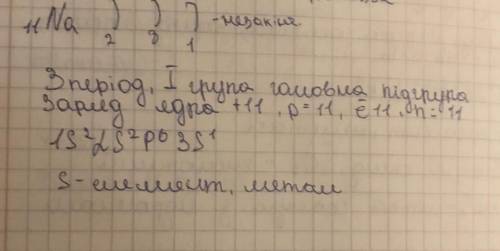 11Na ) ) ) - незакінч.
2 8 1
3 період, I група головна підгрупа
Заряд ядра +11, p=11, ē 11, n=11
1S²2S²P⁶3S¹
S-елемент, метал